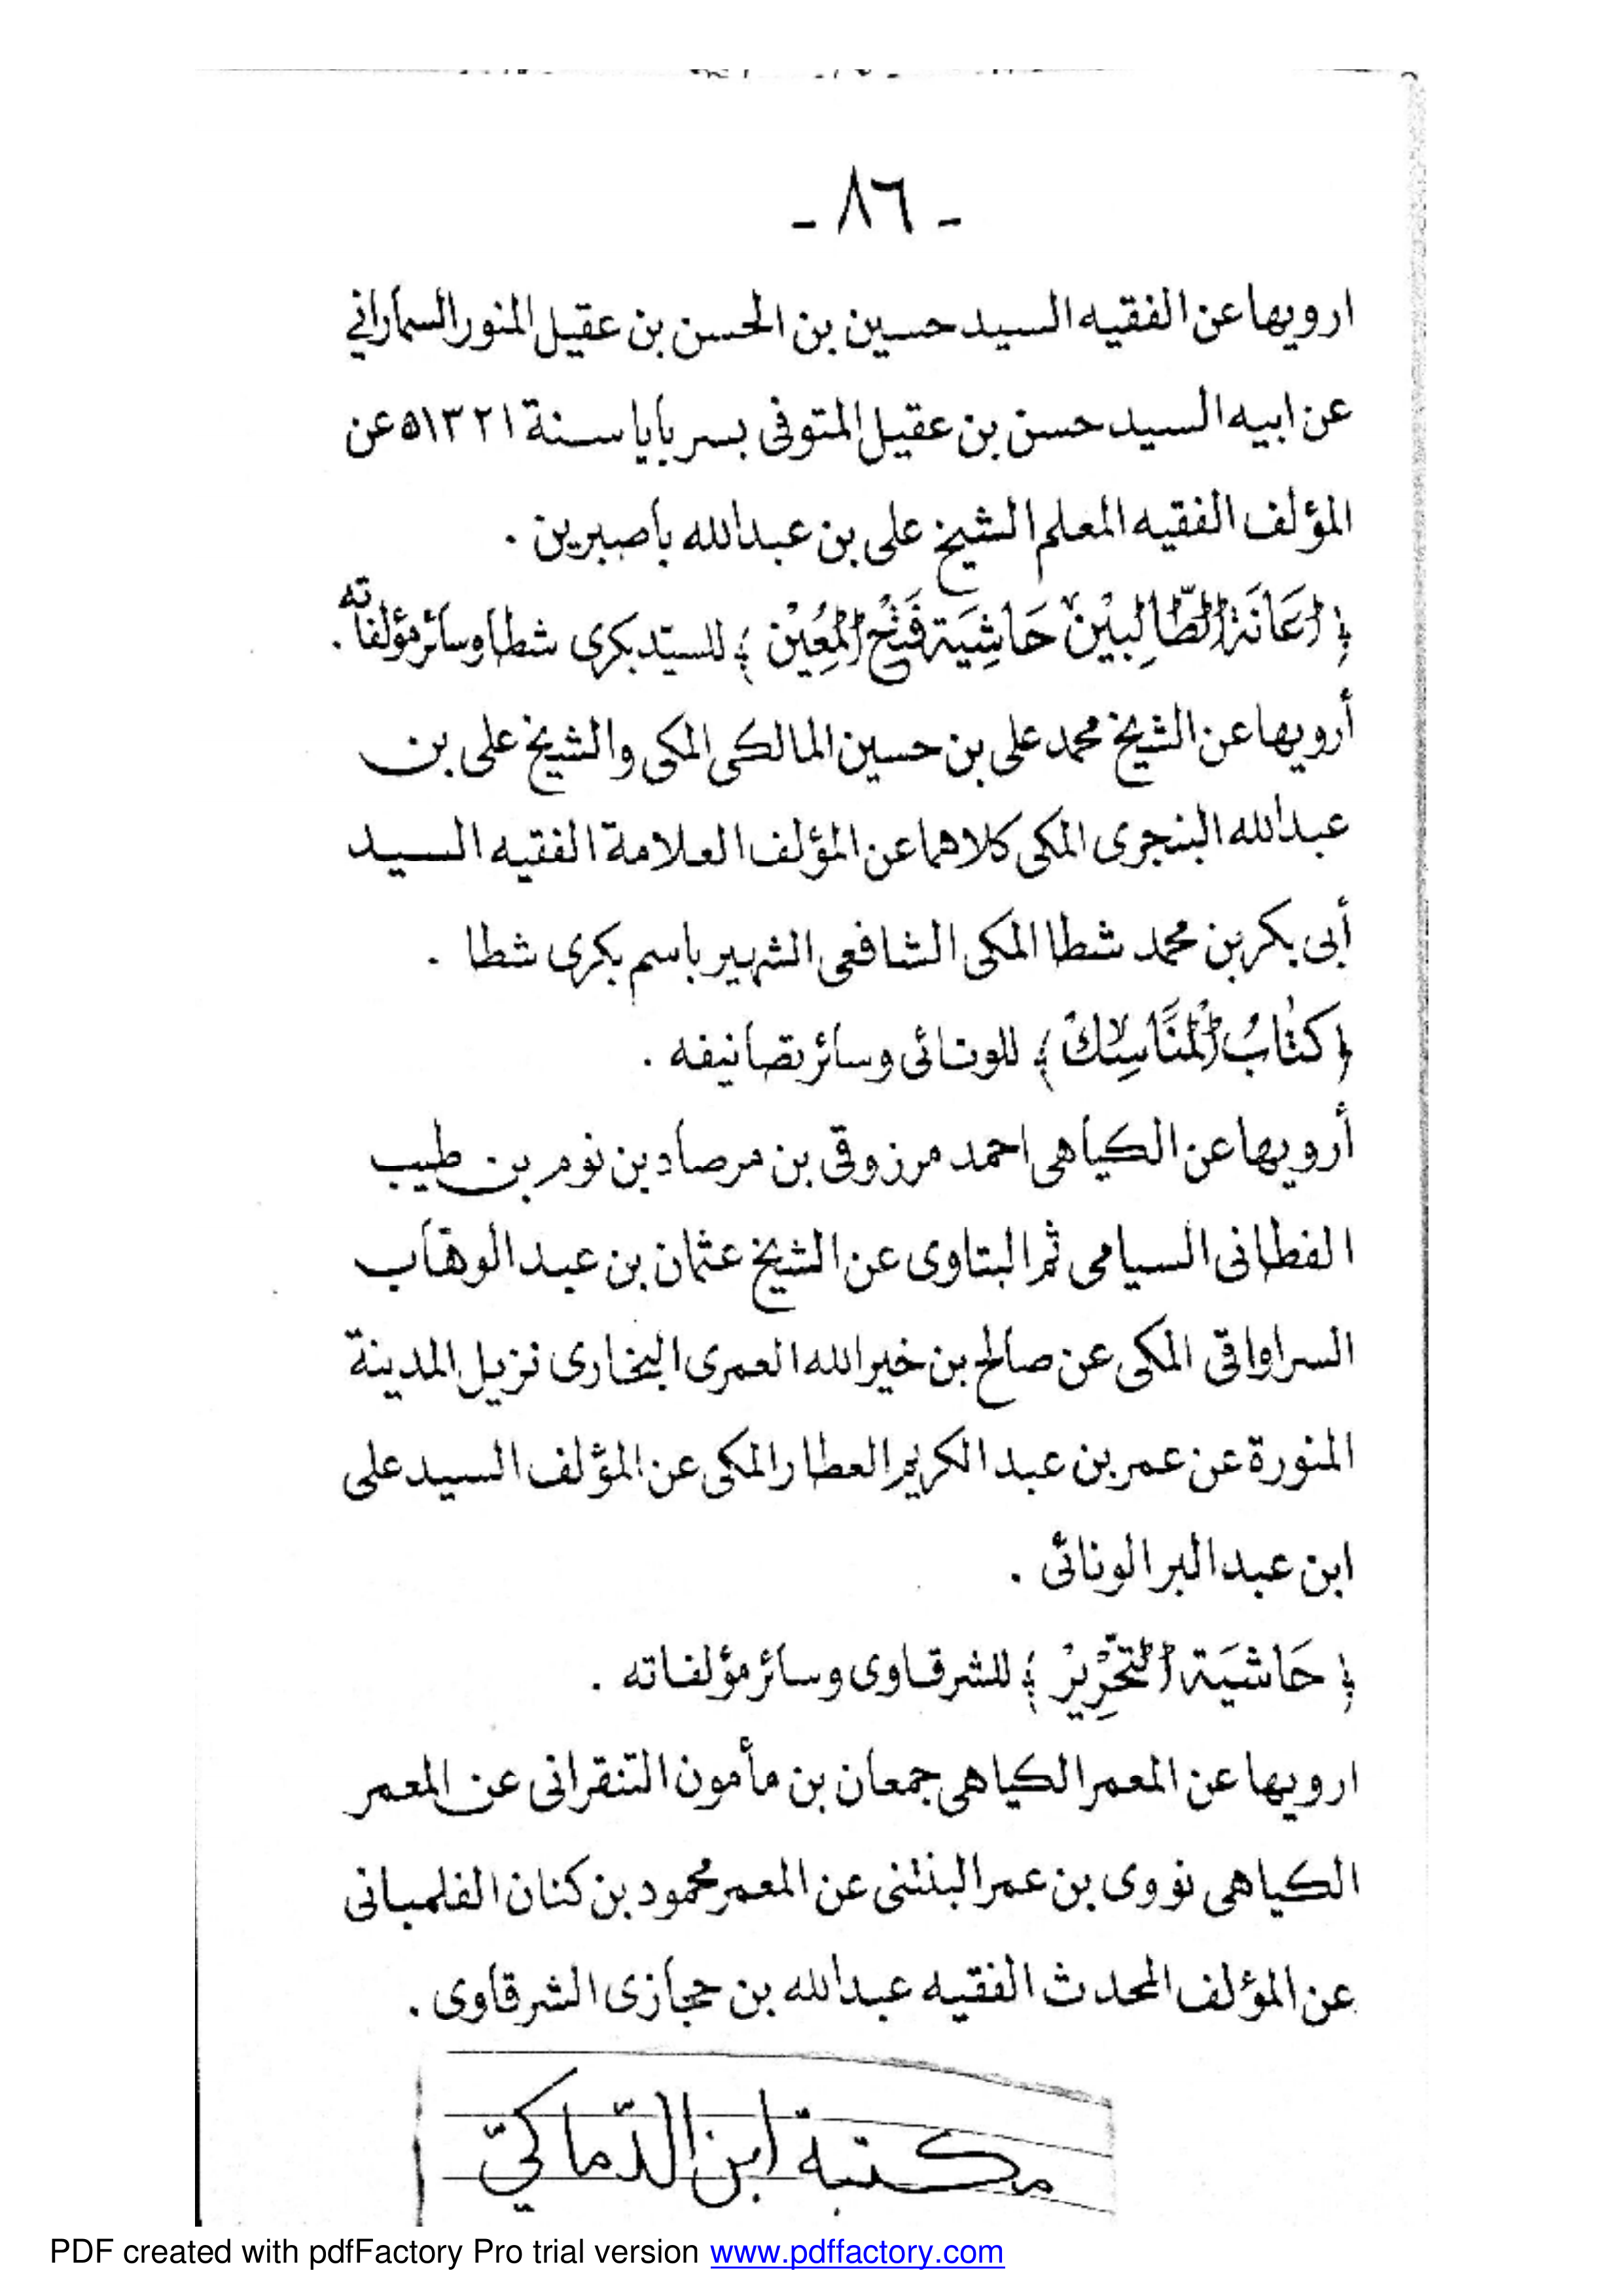 - ٨٦ -
ارويها عن الفقيه السيد حسين بن الحسن بن عقيل المنور السماراني
عن ابيه السيد حسن بن عقيل المتوفى بسربايا سنة ١٣٢١ﻫ عن
المؤلف الفقيه المعلم الشيخ على بن عبدالله باصبرين .
﴿ إِعَانَةُ الطَّالِبِيْنَ حَاشِيَة فَتْحُ الْمُعِيْن ﴾ للسيّد بكرى شطا وسائر مؤلفاته .
أرويها عن الشيخ محمد على بن حسين المالكى المكى والشيخ على بن
عبدالله البنجرى المكى كلاهما عن المؤلف العلامة الفقيه السيد
أبى بكر بن محمد شطا المكى الشافعى الشهير باسم بكرى شطا .
﴿ كتَابُ الْمَنَاسِكْ ﴾ للونائى وسائر تصانيفه .
أرويها عن الكياهى احمد مرزوقى بن مرصاد بن نوم بن طيب
الفطانى السيامى ثم البتاوى عن الشيخ عثمان بن عبد الوهاب
السراواقى المكى عن صالح بن خير الله العمرى البخارى نزيل المدينة
المنورة عن عمر بن عبد الكريم العطار المكى عن المؤلف السيد على
ابن عبد البر الونائى .
﴿ حَاشيَة التَّحْرِيرْ ﴾ للشرقاوى وسائر مؤلفاته .
ارويها عن المعمر الكياهى جمعان بن مأمون التنقرانى عن المعمر
الكياهى نووى بن عمر البنتنى عن المعمر محمود بن كنان الفلمبانى
عن المؤلف المحدث الفقيه عبدالله بن حجازى الشرقاوى .
مكتبة ابن الدّماكيّ
PDF created with pdfFactory Pro trial version www.pdffactory.com